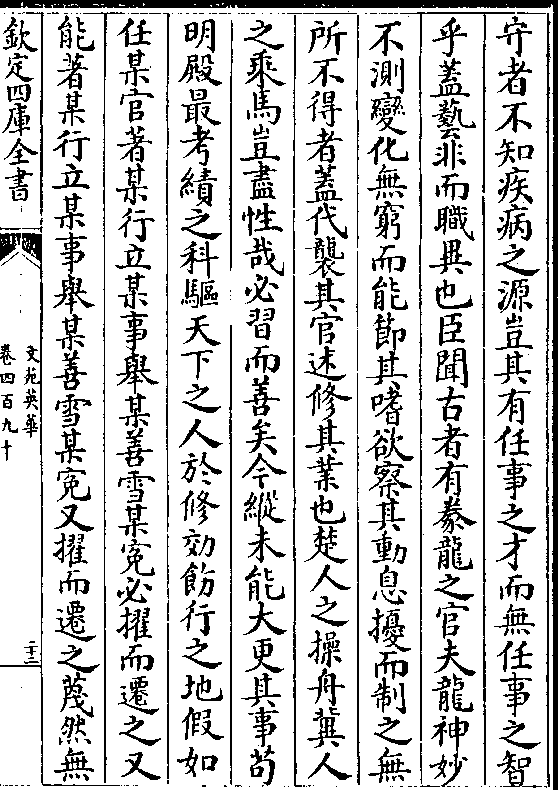 守者不知疾病之源豈其有任事之才而無任事之智
乎蓋藝非而職異也臣聞古者有豢龍之官夫龍神妙
不測變化無窮而能節其嗜欲察其動息擾而制之無
所不得者蓋代襲其官述修其業也楚人之操舟冀人
之乘馬豈盡性哉必習而善矣今縱未能大更其事茍
明殿最考績之科驅天下之人於修効飭行之地假如
任某官著某行立某事舉某善雪某寃必擢而遷之又
能著某行立某事舉某善雪某寃又擢而遷之蔑然無
欽定四庫全書
文苑英華
卷四百九十
二十二